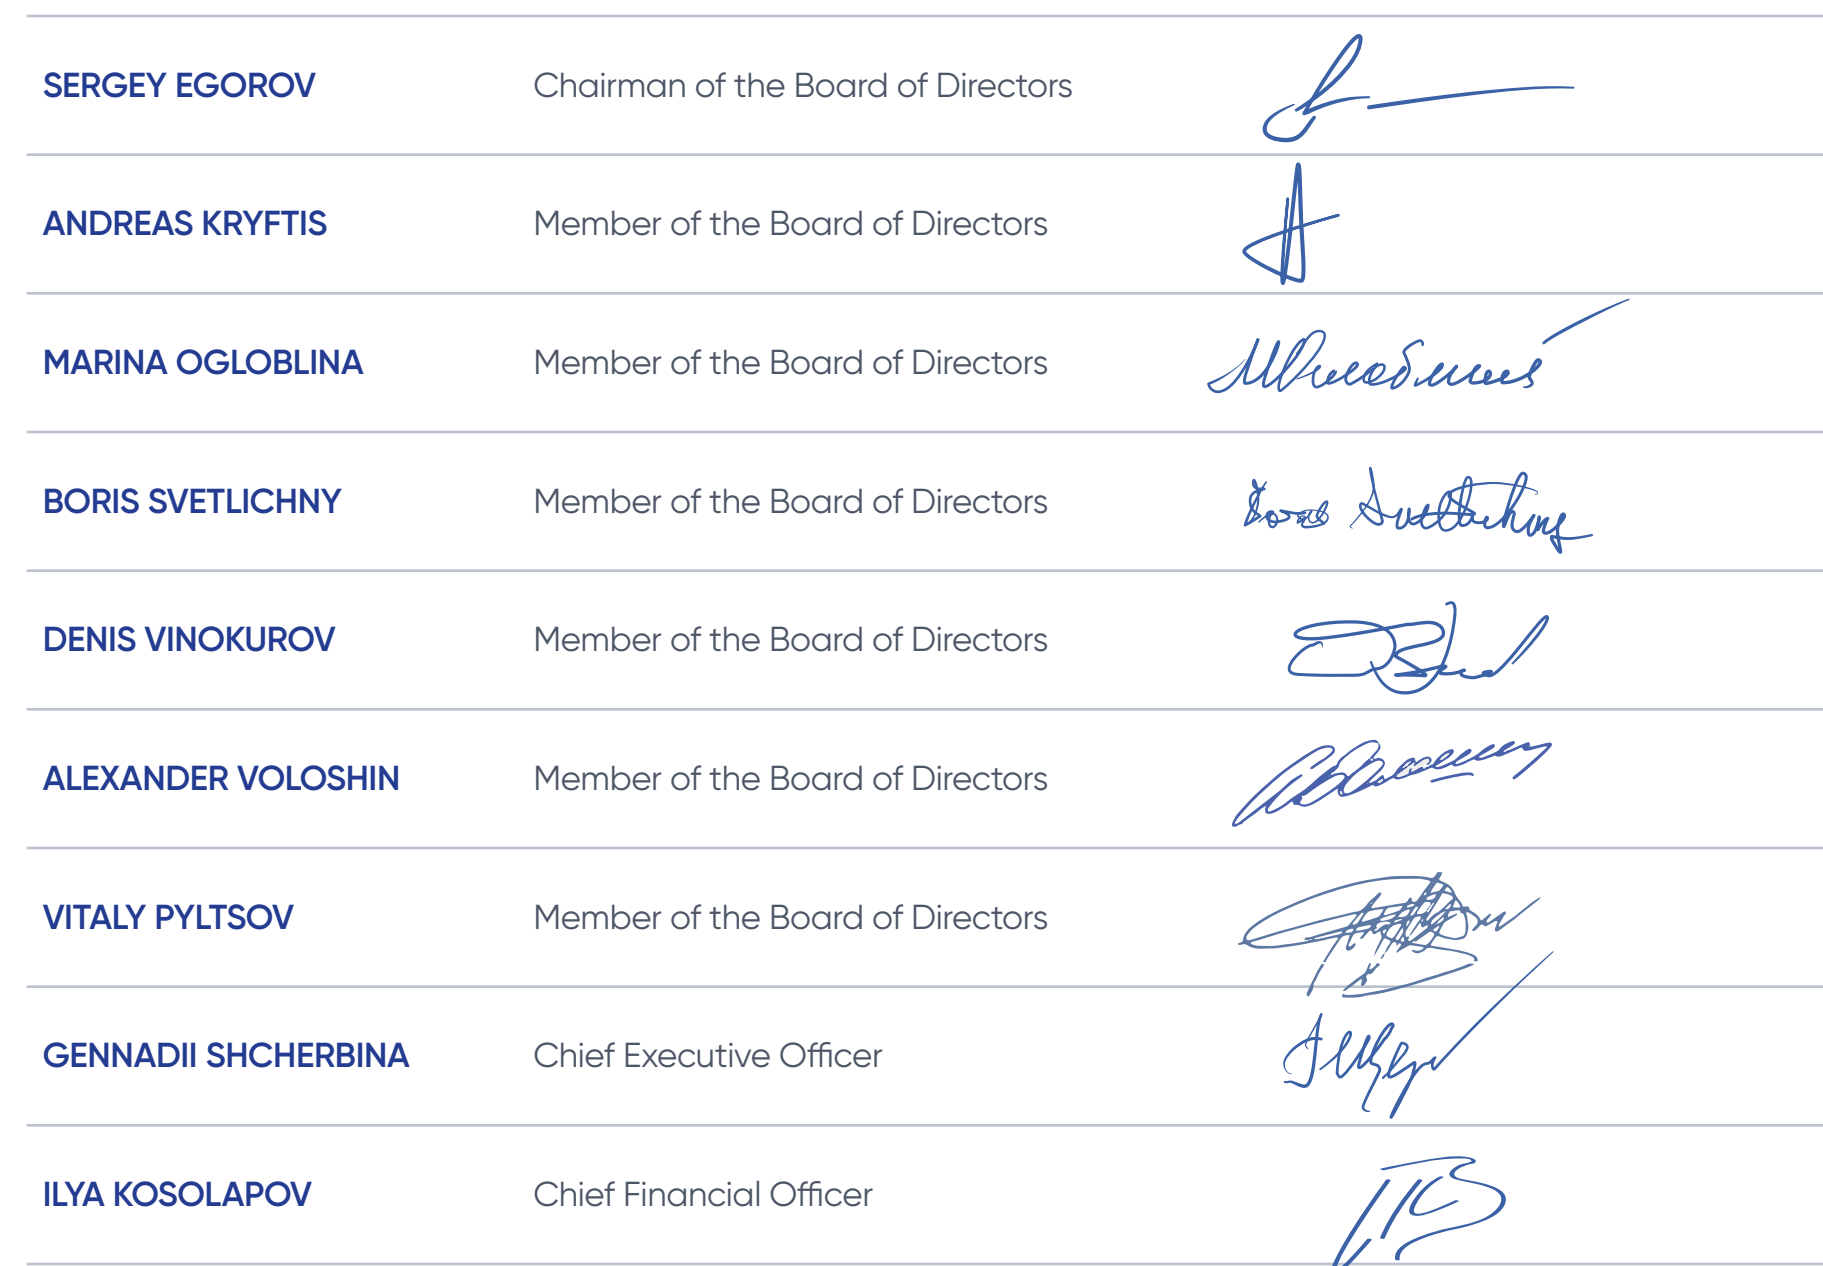 SERGEY EGOROV Chairman of the Board of Directors
ANDREAS KRYFTIS Member of the Board of Directors
MARINA OGLOBLINA Member of the Board of Directors
BORIS SVETLICHNY Member of the Board of Directors
DENIS VINOKUROV Member of the Board of Directors
ALEXANDER VOLOSHIN Member of the Board of Directors
VITALY PYLTSOV Member of the Board of Directors
GENNADII SHCHERBINA Chief Executive Officer
ILYA KOSOLAPOV Chief Financial Officer